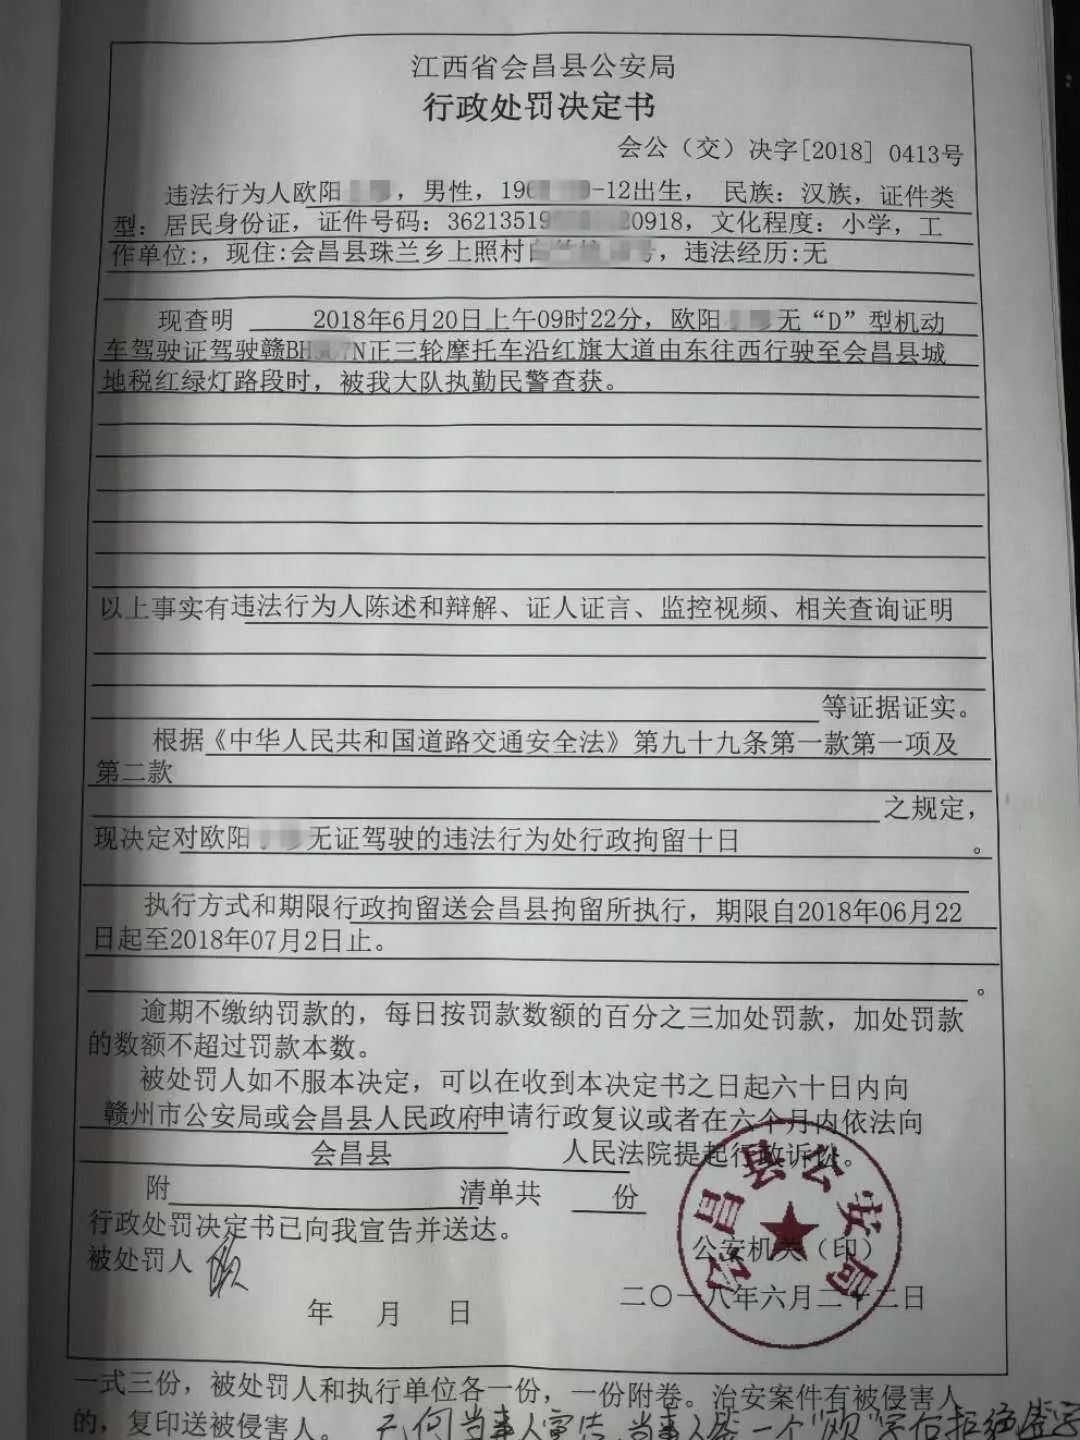 江西省会昌县公安局
行政处罚决定书
会公（交）决字[2018] 0413号
违法行为人欧阳，男性，196-12出生， 民族：汉族，证件类
型：居民身份证，证件号码：36213519 20918，文化程度：小学，工
作单位:，现住:会昌县珠兰乡上照村号，违法经历:无
现查明 2018年6月20日上午09时22分，欧阳无“D”型机动
车驾驶证驾驶赣BH7N正三轮摩托车沿红旗大道由东往西行驶至会昌县城
地税红绿灯路段时，被我大队执勤民警查获。
以上事实有违法行为人陈述和辩解、证人证言、监控视频、相关查询证明
等证据证实。
根据《中华人民共和国道路交通安全法》第九十九条第一款第一项及
第二款
之规定，
现决定对欧阳无证驾驶的违法行为处行政拘留十日。
执行方式和期限行政拘留送会昌县拘留所执行，期限自2018年06月22
日起至2018年07月2日止。
。
逾期不缴纳罚款的，每日按罚款数额的百分之三加处罚款，加处罚款
的数额不超过罚款本数。
被处罚人如不服本决定，可以在收到本决定书之日起六十日内向
赣州市公安局或会昌县人民政府申请行政复议或者在六个月内依法向
会昌县 人民法院提起行政诉讼。
附 清单共 份
行政处罚决定书已向我宣告并送达。
会昌县公安局
公安机关（印）
被处罚人 欧
二〇一八年六月二十二日
年 月 日
一式三份，被处罚人和执行单位各一份，一份附卷。治安案件有被侵害人
的，复印送被侵害人。 当事人宣告,当事人签一个“欧”字后拒绝签字